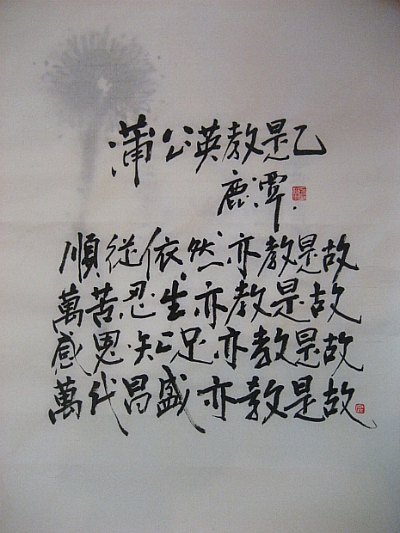 蒲公英教是乙
鹿潭
順從依然亦教是故
萬苦忍生亦教是故
感恩知足亦教是故
萬代昌盛亦教是故